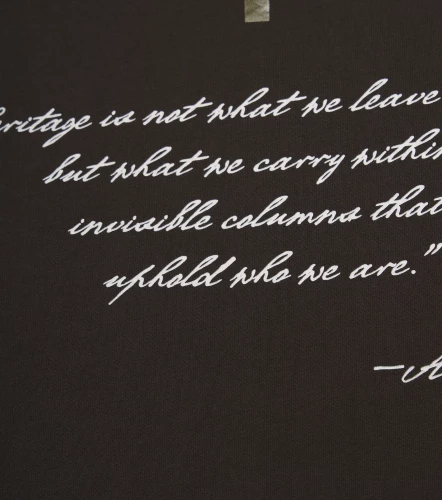 ritage is not what we leave
but what we carry within
invisible columns that
uphold who we are.”
—A